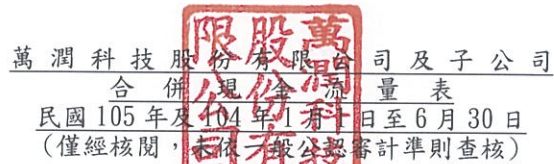 萬潤科技股份有限公司及子公司
合併現金流量表
民國 105 年及 104 年 1 月 1 日至 6 月 30 日
(僅經核閱，未依一般公認審計準則查核)
萬潤科技
股份有
限公司